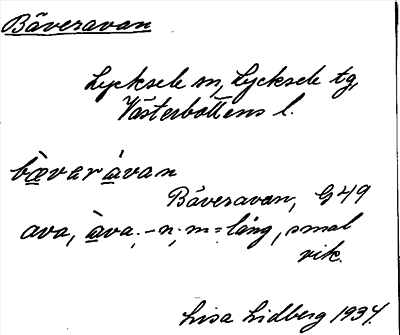 Bäveravan
Lycksele sn, Lycksele tg,
Västerbottens l.
bèvaràvan
Bäveravan, G49
ava, àva, -n, m = lång, smal
vik.
Lisa Lidberg 1937.